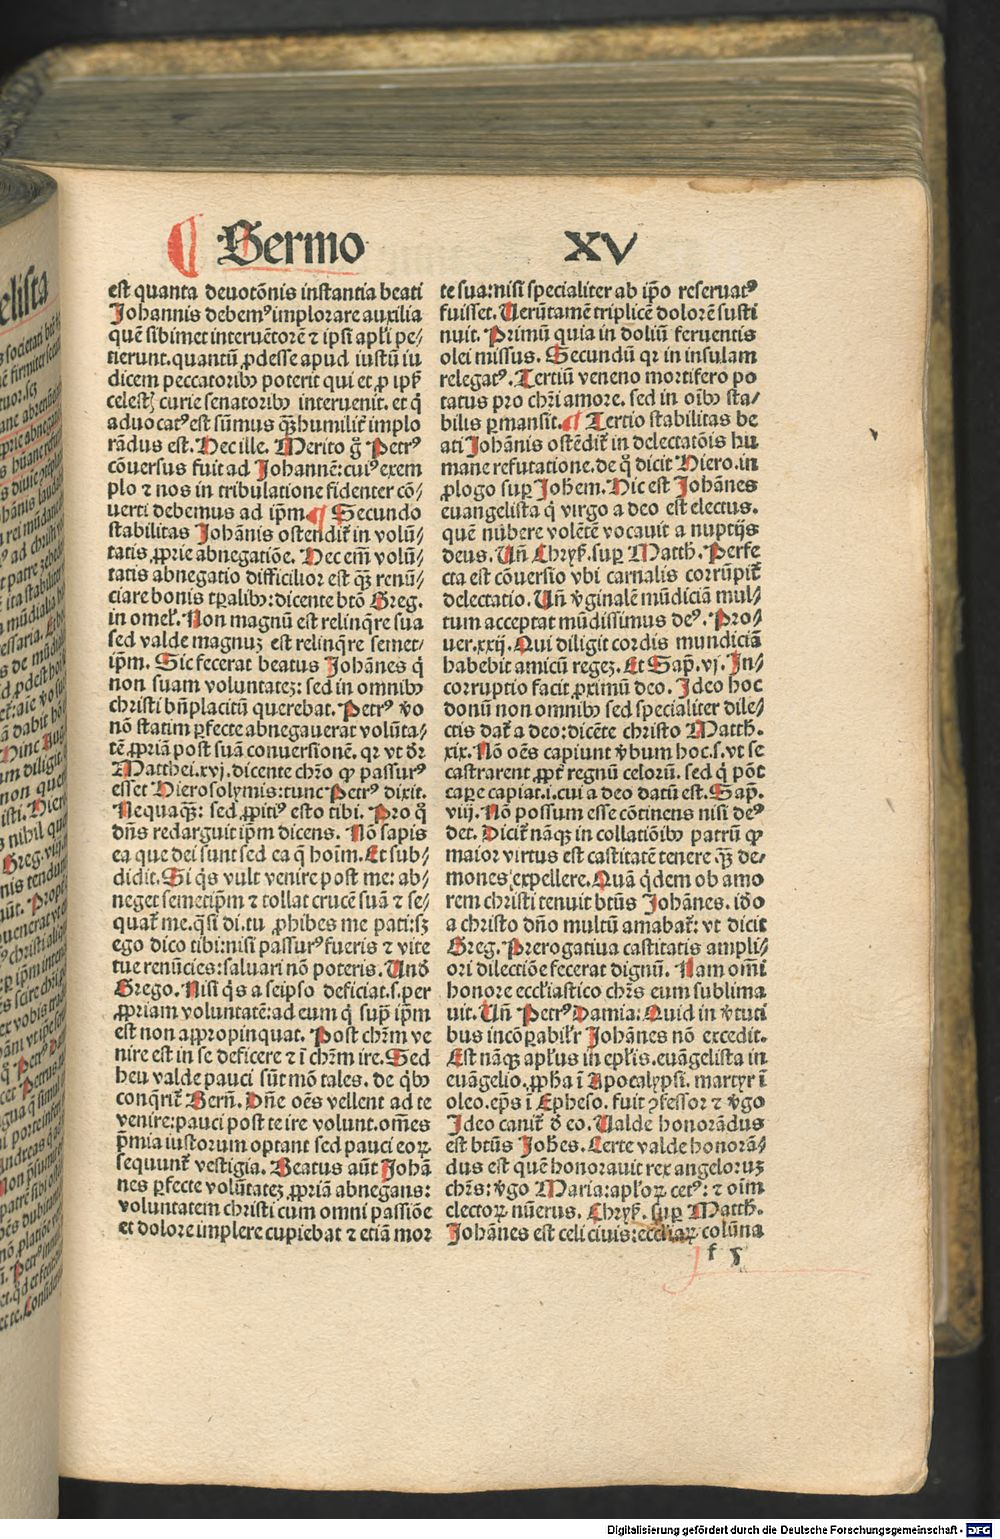 Sermo XV
est quanta deuotõnis instantia beati
Johannis debemꝰ implorare auxilia
quẽ sibimet interuẽtorẽ ⁊ ipsi apłi pe⸗
tierunt. quantũ ꝓdesse apud iustũ iu
dicem peccatoribꝰ poterit qui et ꝓ ipẜ
celestꝭ curie senatoribꝰ interuenit. et q̃
aduocatꝰ est sũmus qꝫ̃ humilit᷑ implo
rãdus est. Hec ille. Merito g̊ Petrꝰ
cõuersus fuit ad Johannẽ: cuiꝰ exem
plo ⁊ nos in tribulatione fidenter cõ⸗
uerti debemus ad ip̃m. ¶ Secundo
stabilitas Johãnis ostendit᷑ in volũ⸗
tatis ꝓprie abnegatiõe. Hec em̃ volũ⸗
tatis abnegatio difficilior est qꝫ̃ renũ⸗
ciare bonis tꝑalibꝰ: dicente btõ Greg.
in omeł. Non magnũ est relinq̃re sua
sed valde magnuꝫ est relinq̃re semet⸗
ip̃m. Sic fecerat beatus Johãnes q̇
non suam voluntateꝫ: sed in omnibꝰ
christi bn̄placitũ querebat. Petrꝰ v̊o
nõ statim ꝑfecte abnegauerat volũta⸗
tẽ ꝓpriã post suã conuersionẽ. qr vt dr̃
Matthei. xvj. dicente chr̃o ꝙ passurꝰ
esset Hierosolymis: tunc Petrꝰ dixit.
Nequaqꝫ̃: sed ꝓpitiꝰ esto tibi. Pro q̊
dñs redarguit ip̃m dicens. Nõ sapis
ea que dei sunt sed ea q̃ hoĩm. Et sub⸗
didit. Si q̇s vult venire post me: ab⸗
neget semetip̃m ⁊ tollat crucẽ suã ⁊ se⸗
quat᷑ me. q̃si di. tu ꝓhibes me pati: sꝫ
ego dico tibi: nisi passurꝰ fueris ⁊ vite
tue renũcies: saluari nõ poteris. Und̾
Grego. Nisi q̇s a seipso deficiat. s. per
ꝓpriam voluntatẽ: ad eum q̇ sup̃ ip̃m
est non appropinquat. Post chr̃m ve
nire est in se deficere ⁊ ĩ chr̃m ire. Sed
heu valde pauci sũt mõ tales. de q̇bꝰ
conq̃rit᷑ Berñ. Dñe oẽs vellent ad te
venire: pauci post te ire volunt. om̃es
p̃mia iustorum optant sed pauci eoꝝ
sequunt᷑ vestigia. Beatus aũt Johã
nes ꝑfecte volũtateꝫ ꝓpriã abnegans:
voluntatem christi cum omni passiõe
et dolore implere cupiebat ⁊ etiã mor
te sua: nisi specialiter ab ip̃o reseruatꝰ
fuisset. Uerũtamẽ triplicẽ dolorẽ susti
nuit. Primũ quia in doliũ feruentis
olei missus. Secundũ qr in insulam
relegatꝰ. Tertiũ veneno mortifero po
tatus pro chr̃i amore. sed in oĩbꝰ sta⸗
bilis ꝑmansit. ¶ Tertio stabilitas be
ati Johãnis ostẽdit᷑ in delectatõis hu
mane refutatione. de q̊ dicit Hiero. in
ꝓlogo sup̃ Johẽm. Hic est Johãnes
euangelista q̇ virgo a deo est electus.
quẽ nubere volẽtẽ vocauit a nuptijs
deus. Uñ Chryẜ. sup̃ Matth̃. Perfe
cta est cõuersio vbi carnalis corrũpit᷑
delectatio. Uñ v̾ginalẽ mũdiciã mul⸗
tum acceptat mũdissimus deꝰ. Pro⸗
uer. xxij. Qui diligit cordis mundiciã
habebit amicũ regeꝫ. Et Sap̃. vj. In⸗
corruptio facit ꝓximũ deo. Ideo hoc
donũ non omnibꝰ sed specialiter dile⸗
ctis dat᷑ a deo: dicẽte christo Matth̃.
xix. Nõ oẽs capiunt v̾bum hoc. s. vt se
castrarent ꝓpt᷑ regnũ celorũ. sed q̇ põt
caꝑe capiat. i. cui a deo datũ est. Sap̃.
viij. Nõ possum esse cõtinens nisi deꝰ
det. Dicit᷑ nãqꝫ in collatiõibꝰ patrũ ꝙ
maior virtus est castitatẽ tenere qꝫ̃ de⸗
mones expellere. Quã q̇dem ob amo
rem christi tenuit btũs Johãnes. iðo
a christo dño multũ amabat᷑: vt dicit
Greg. Prerogatiua castitatis ampli⸗
ori dilectiõe fecerat dignũ. Nam om̃i
honore eccłiastico chr̃s eum sublima
uit. Uñ Petrꝰ Damia: Quid in v̾tuti
bus incõꝑabilr̃ Johãnes nõ excedit.
Est nãqꝫ apłus in epłis. euãgelista in
euãgelio. ꝓpha ĩ Apocalypsi. martyr ĩ
oleo. ep̃s ĩ Epheso. fuit ꝯfessor ⁊ v̾go
Ideo canit᷑ d̾ eo. Ualde honorãdus
est btũs Joh̃es. Certe valde honorã⸗
dus est quẽ honorauit rex angeloruꝫ
chr̃s: v̾go Maria: apłoꝝ cetꝰ: ⁊ oĩm
electoꝝ nũerus. Chryẜ. sup̃ Matth̃.
Johãnes est celi ciuis: eccłiaꝝ colũna
f 5
elista
Digitalisierung gefördert durch die Deutsche Forschungsgemeinschaft - DFG